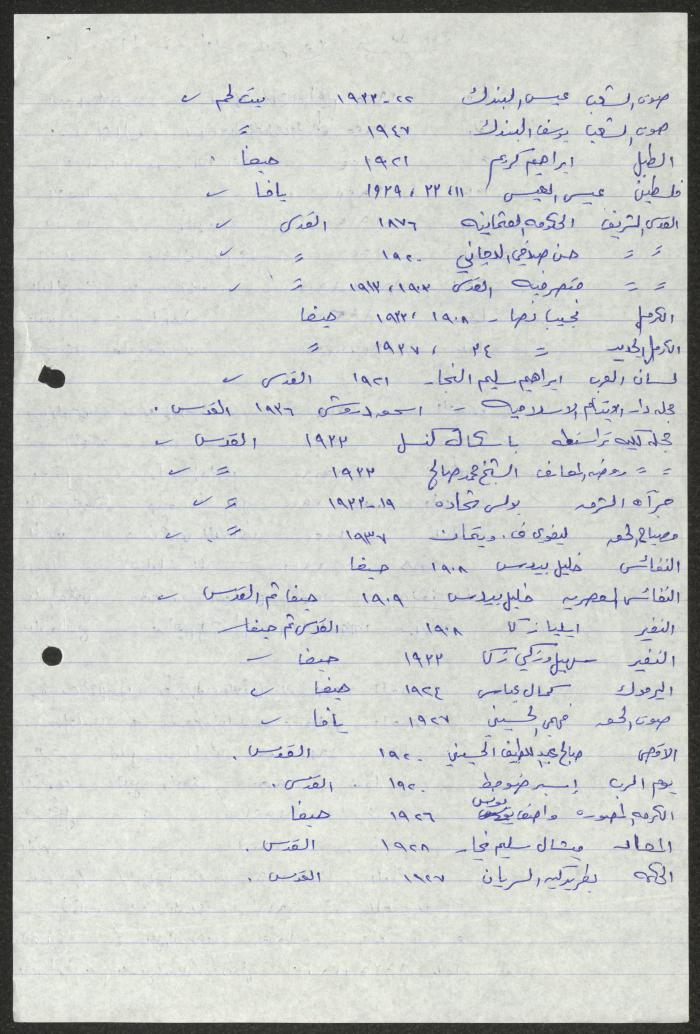 صوت الشعب عيسى البندك ٢٢-١٩٣٣ بيت لحم
صوت الشعب يوسف البندك ١٩٤٧ =
الطبل ابراهيم كريم ١٩٢١ حيفا
فلسطين عيسى العيسى ١١، ٢٢، ١٩٢٩ يافا
القدس الشريف الحكومة العثمانية ١٨٧٦ القدس
= = حسن صدقي الدجاني ١٩٢٠ =
= = متصرفية القدس ١٩٠٣، ١٩١٣ =
الكرمل نجيب نصار ١٩٠٨، ١٩٣٢ حيفا
الكرمل الجديد = ٣٤، ١٩٣٧ =
لسان العرب ابراهيم سليم النجار ١٩٢١ القدس
مجلة دار الايتام الاسلامية - اسحق درويش ١٩٣٦ القدس.
مجلة كلية تراسنطه ١٩٣٣ القدس
= = روضة المعارف الشيخ محمد صالح ١٩٣٣ =
مرآة الشرق بولس شحاده ١٩-١٩٣٣ =
مصباح الحق ليفوي ف. ١٩٣٧ =
النفائس خليل بيدس ١٩٠٨ حيفا
النفائس العصرية خليل بيدس ١٩٠٩ حيفا ثم القدس
النفير ايليا زكا ١٩٠٨ القدس ثم حيفا
النفير سهيل وزكي زكا ١٩٣٣ حيفا
اليرموك كمال عباس ١٩٢٤ حيفا
صوت الحق فهمي الحسيني ١٩٢٧ يافا
الاقصى صالح عبد اللطيف الحسيني ١٩٢٠ القدس.
يوم الرب إسبر ضومط ١٩٢٠ القدس.
الكرمة المصورة واصف يونس ١٩٢٦ حيفا
ميشال سليم نجار ١٩٢٨ القدس.
الحكمة بطريركية السريان ١٩٢٧ القدس.